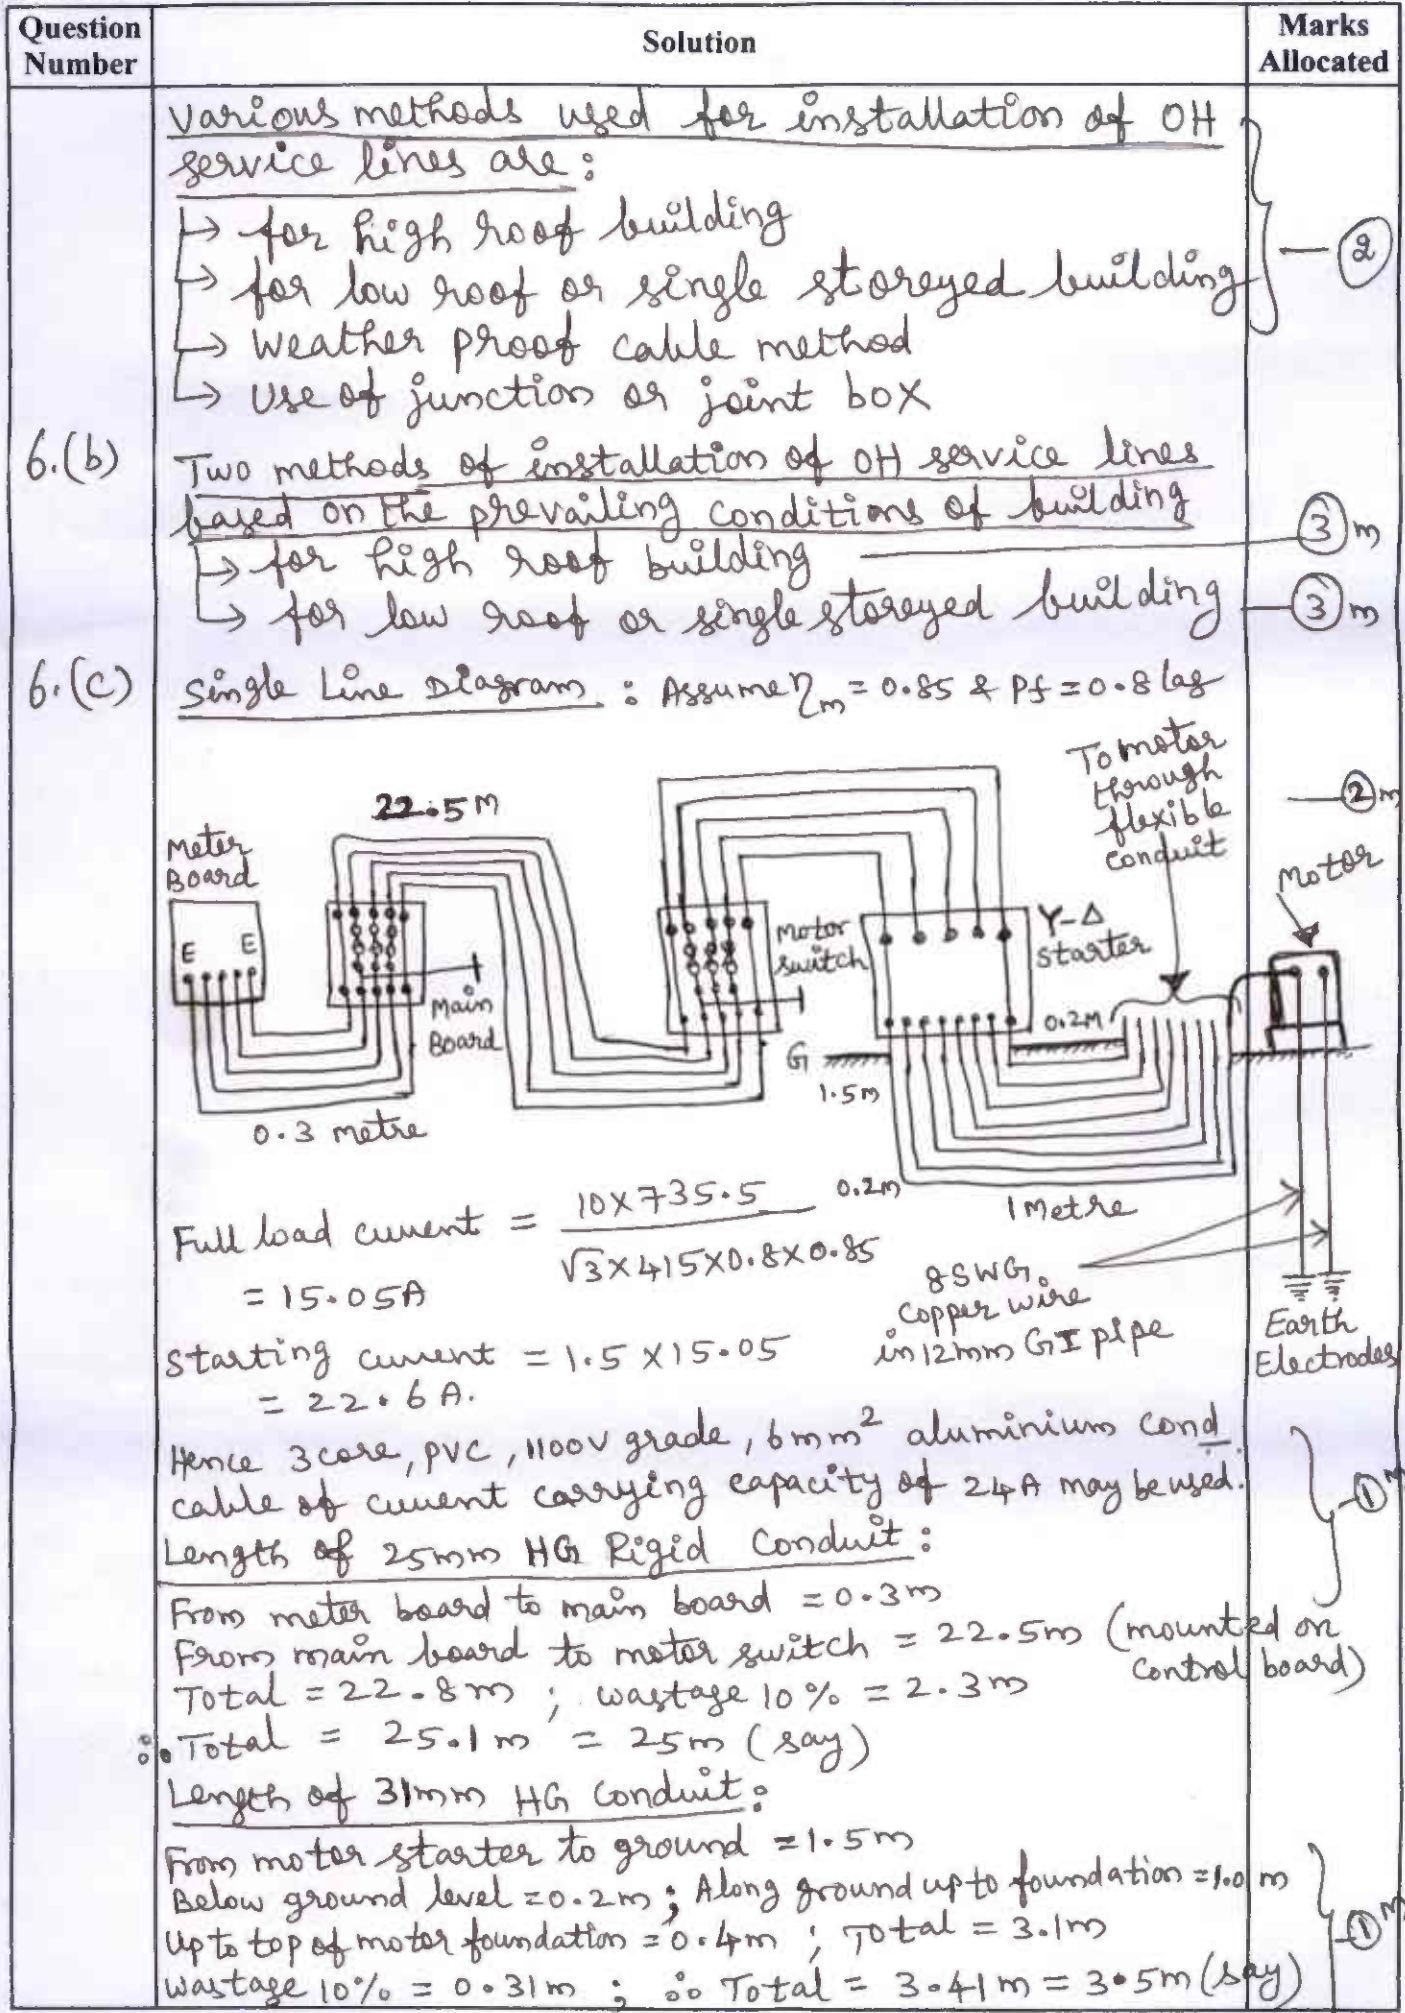 Question Number
Solution
Marks Allocated
Various methods used for installation of OH
service lines are :
↳ for high roof building
↳ for low roof or single storeyed building
↳ Weather proof cable method
↳ Use of junction or joint box
2
6.(b)
Two methods of installation of OH service lines
based on the prevailing conditions of building
↳ for high roof building
3 m
↳ for low roof or single storeyed building
3 m
6.(C)
Single Line Diagram : Assume ηm = 0.85 & Pf = 0.8 lag
To motor
through
flexible
conduit
2 m
22.5 M
Meter
Board
E E
Main
Board
0.3 metre
Motor
switch
Y-Δ
starter
Motor
0.2M
G
1.5m
0.2m
1 Metre
8SWG.
Copper wire
in 12mm GI pipe
Earth
Electrodes
Full load current = 10X735.5 / √3X415X0.8X0.85
= 15.05A
Starting current = 1.5 X 15.05
= 22.6 A.
Hence 3 core, PVC, 1100V grade, 6mm² aluminium cond.
cable of current carrying capacity of 24A may be used.
1 M
Length of 25mm HG Rigid Conduit :
From meter board to main board = 0.3m
From main board to motor switch = 22.5m (mounted on
control board)
Total = 22.8m ; wastage 10% = 2.3m
∴ Total = 25.1m = 25m (say)
Length of 31mm HG Conduit :
From motor starter to ground = 1.5m
Below ground level = 0.2m ; Along ground up to foundation = 1.0 m
Up to top of motor foundation = 0.4m ; Total = 3.1m
1 M
Wastage 10% = 0.31m ; ∴ Total = 3.41m = 3.5m (say)